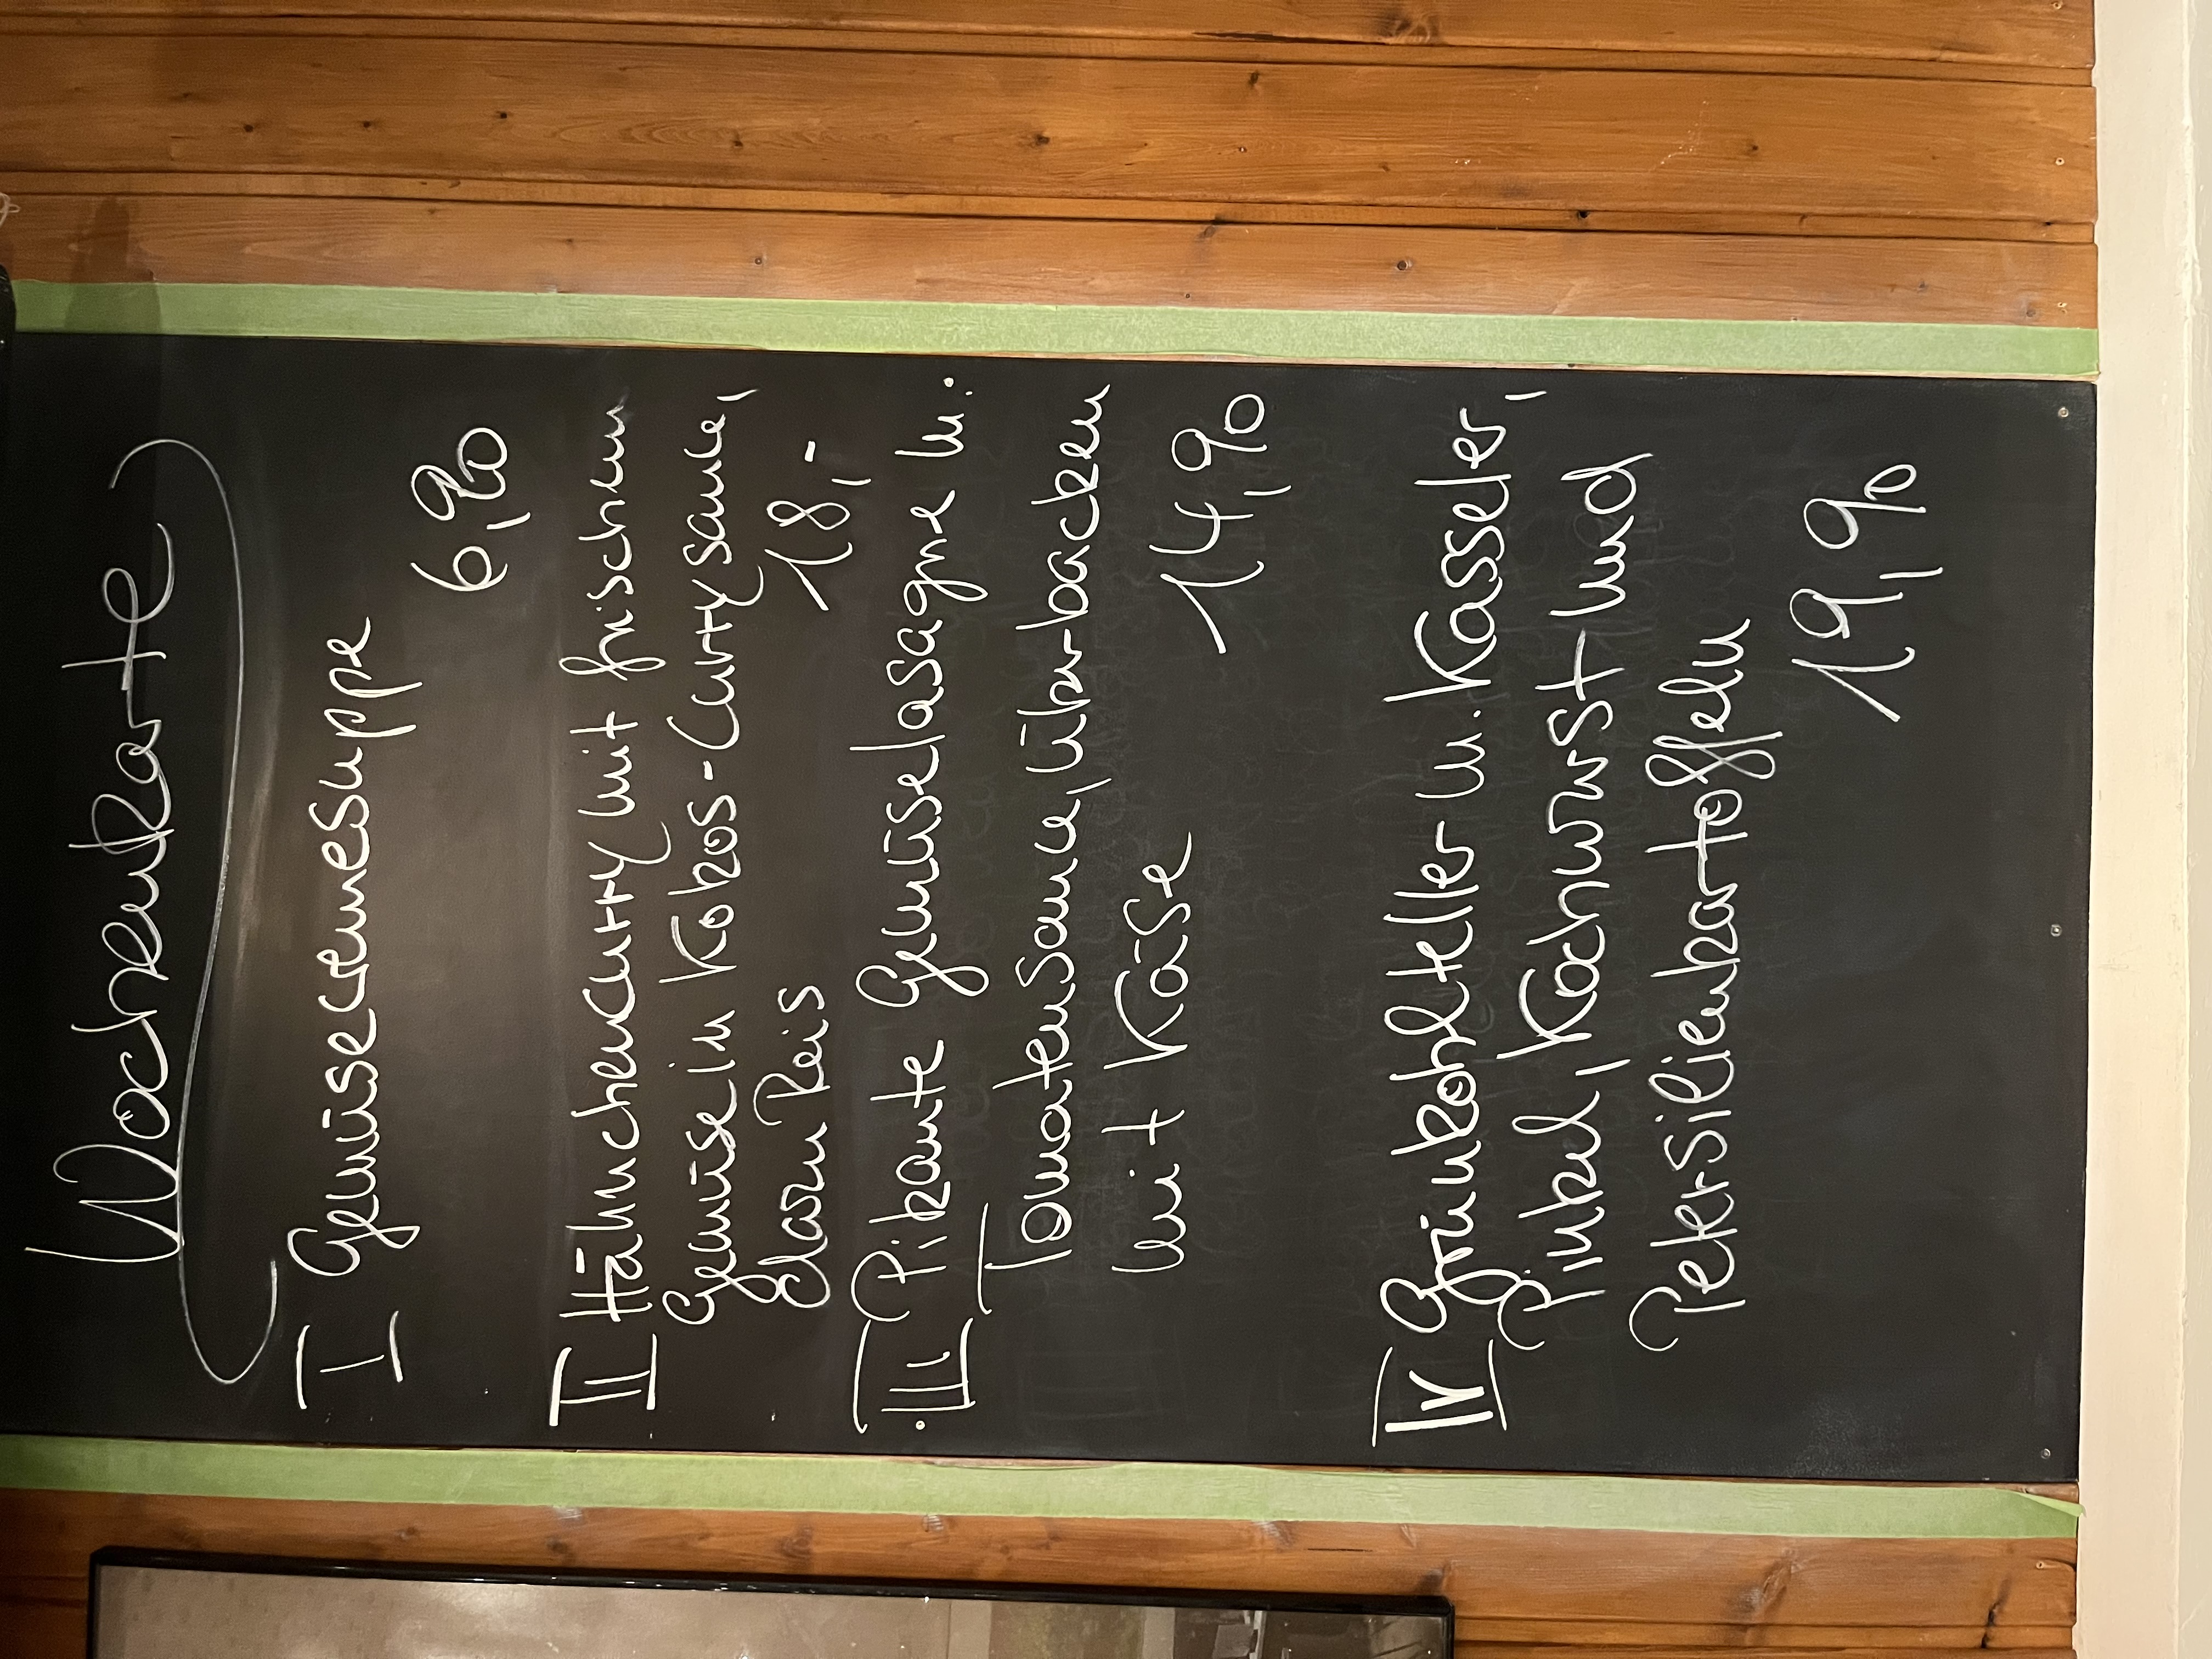 Wochenkarte
I Gemüsecremesuppe
6,90
II Hähnchencurry mit frischem
Gemüse in Kokos-Currysauce,
dazu Reis 18,-
III Pikante Gemüselasagne m.
Tomatensauce, überbacken
mit Käse 14,90
IV Grünkohlteller m. Kasseler,
Pinkel, Kochwurst und
Petersilienkartoffeln
19,90